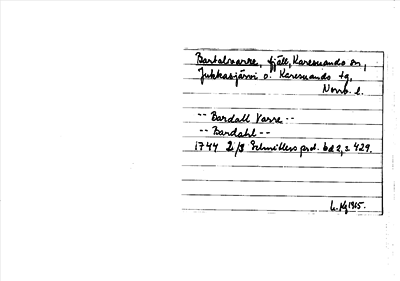 Bartalvarre, fjäll, Karesuando sn,
Jukkasjärvi o. Karesuando tg,
Norrb. l.
-- Bardall Varre --
-- Bardahl --
1744 2/3 Schnitlers prot. bd 2, s 429.
1915.